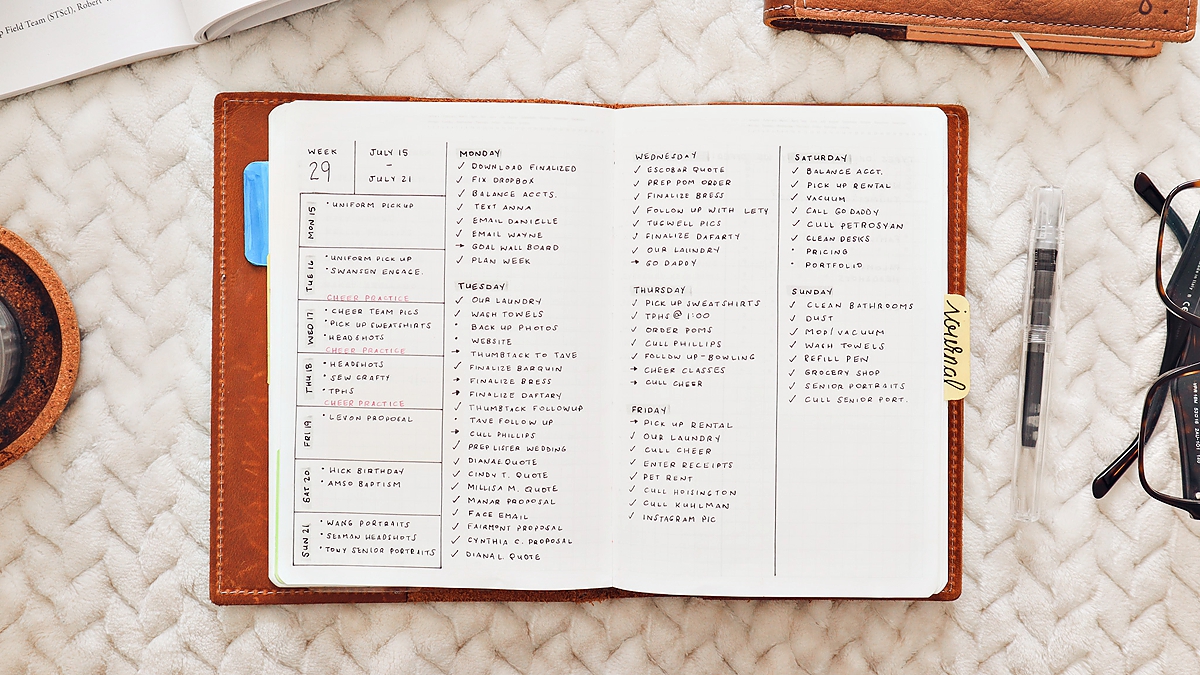 p Field Team (STScI), Robert
WEEK
29
JULY 15
-
JULY 21
MON 15
• UNIFORM PICKUP
TUE 16
• UNIFORM PICK UP
• SWANSEN ENGAGE.
CHEER PRACTICE
WED 17
• CHEER TEAM PICS
• PICK UP SWEATSHIRTS
• HEADSHOTS
CHEER PRACTICE
THU 18
• HEADSHOTS
• SEW CRAFTY
• TPHS
CHEER PRACTICE
FRI 19
• LEVON PROPOSAL
SAT 20
• HICK BIRTHDAY
• AMSO BAPTISM
SUN 21
• WANG PORTRAITS
• SEMAN HEADSHOTS
• TONY SENIOR PORTRAITS
MONDAY
✓ DOWNLOAD FINALIZED
✓ FIX DROPBOX
✓ BALANCE ACCTS.
✓ TEXT ANNA
✓ EMAIL DANIELLE
✓ EMAIL WAYNE
→ GOAL WALL BOARD
✓ PLAN WEEK
TUESDAY
✓ OUR LAUNDRY
✓ WASH TOWELS
• BACK UP PHOTOS
• WEBSITE
→ THUMBTACK TO TAVE
✓ FINALIZE BARQUIN
→ FINALIZE BRESS
→ FINALIZE DAFTARY
✓ THUMBTACK FOLLOWUP
• TAVE FOLLOW UP
→ CULL PHILLIPS
✓ PREP LISTER WEDDING
✓ DIANAL QUOTE
✓ CINDY T. QUOTE
✓ MILLISA M. QUOTE
✓ MANAR PROPOSAL
✓ FACE EMAIL
✓ FAIRMONT PROPOSAL
✓ CYNTHIA C. PROPOSAL
✓ DIANA L. QUOTE
WEDNESDAY
✓ ESCOBAR QUOTE
✓ PREP POM ORDER
✓ FINALIZE BRESS
✓ FOLLOW UP WITH LETY
✓ TUGWELL PICS
✓ FINALIZE DAFARTY
✓ OUR LAUNDRY
→ GO DADDY
THURSDAY
✓ PICK UP SWEATSHIRTS
✓ TPHS @ 1:00
✓ ORDER POMS
✓ CULL PHILLIPS
✓ FOLLOW UP - BOWLING
→ CHEER CLASSES
→ CULL CHEER
FRIDAY
→ PICK UP RENTAL
✓ OUR LAUNDRY
✓ CULL CHEER
✓ ENTER RECEIPTS
✓ PET RENT
✓ CULL HOISINGTON
✓ CULL KUHLMAN
✓ INSTAGRAM PIC
SATURDAY
✓ BALANCE ACCT.
✓ PICK UP RENTAL
✓ VACUUM
✓ CALL GO DADDY
✓ CULL PETROSYAN
✓ CLEAN DESKS
• PRICING
• PORTFOLIO
SUNDAY
✓ CLEAN BATHROOMS
✓ DUST
✓ MOP/VACUUM
✓ WASH TOWELS
✓ REFILL PEN
✓ GROCERY SHOP
✓ SENIOR PORTRAITS
✓ CULL SENIOR PORT.
journal